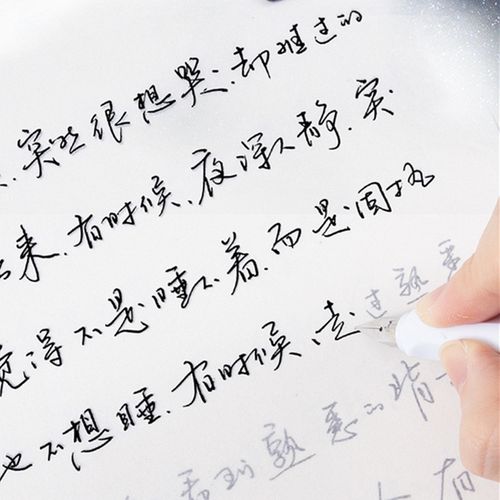 突然很想哭，却难过的
来，有时候，夜深人静，突
觉得不是睡不着，而是固执
地不想睡，有时候，走过熟悉
看到熟悉的背
有